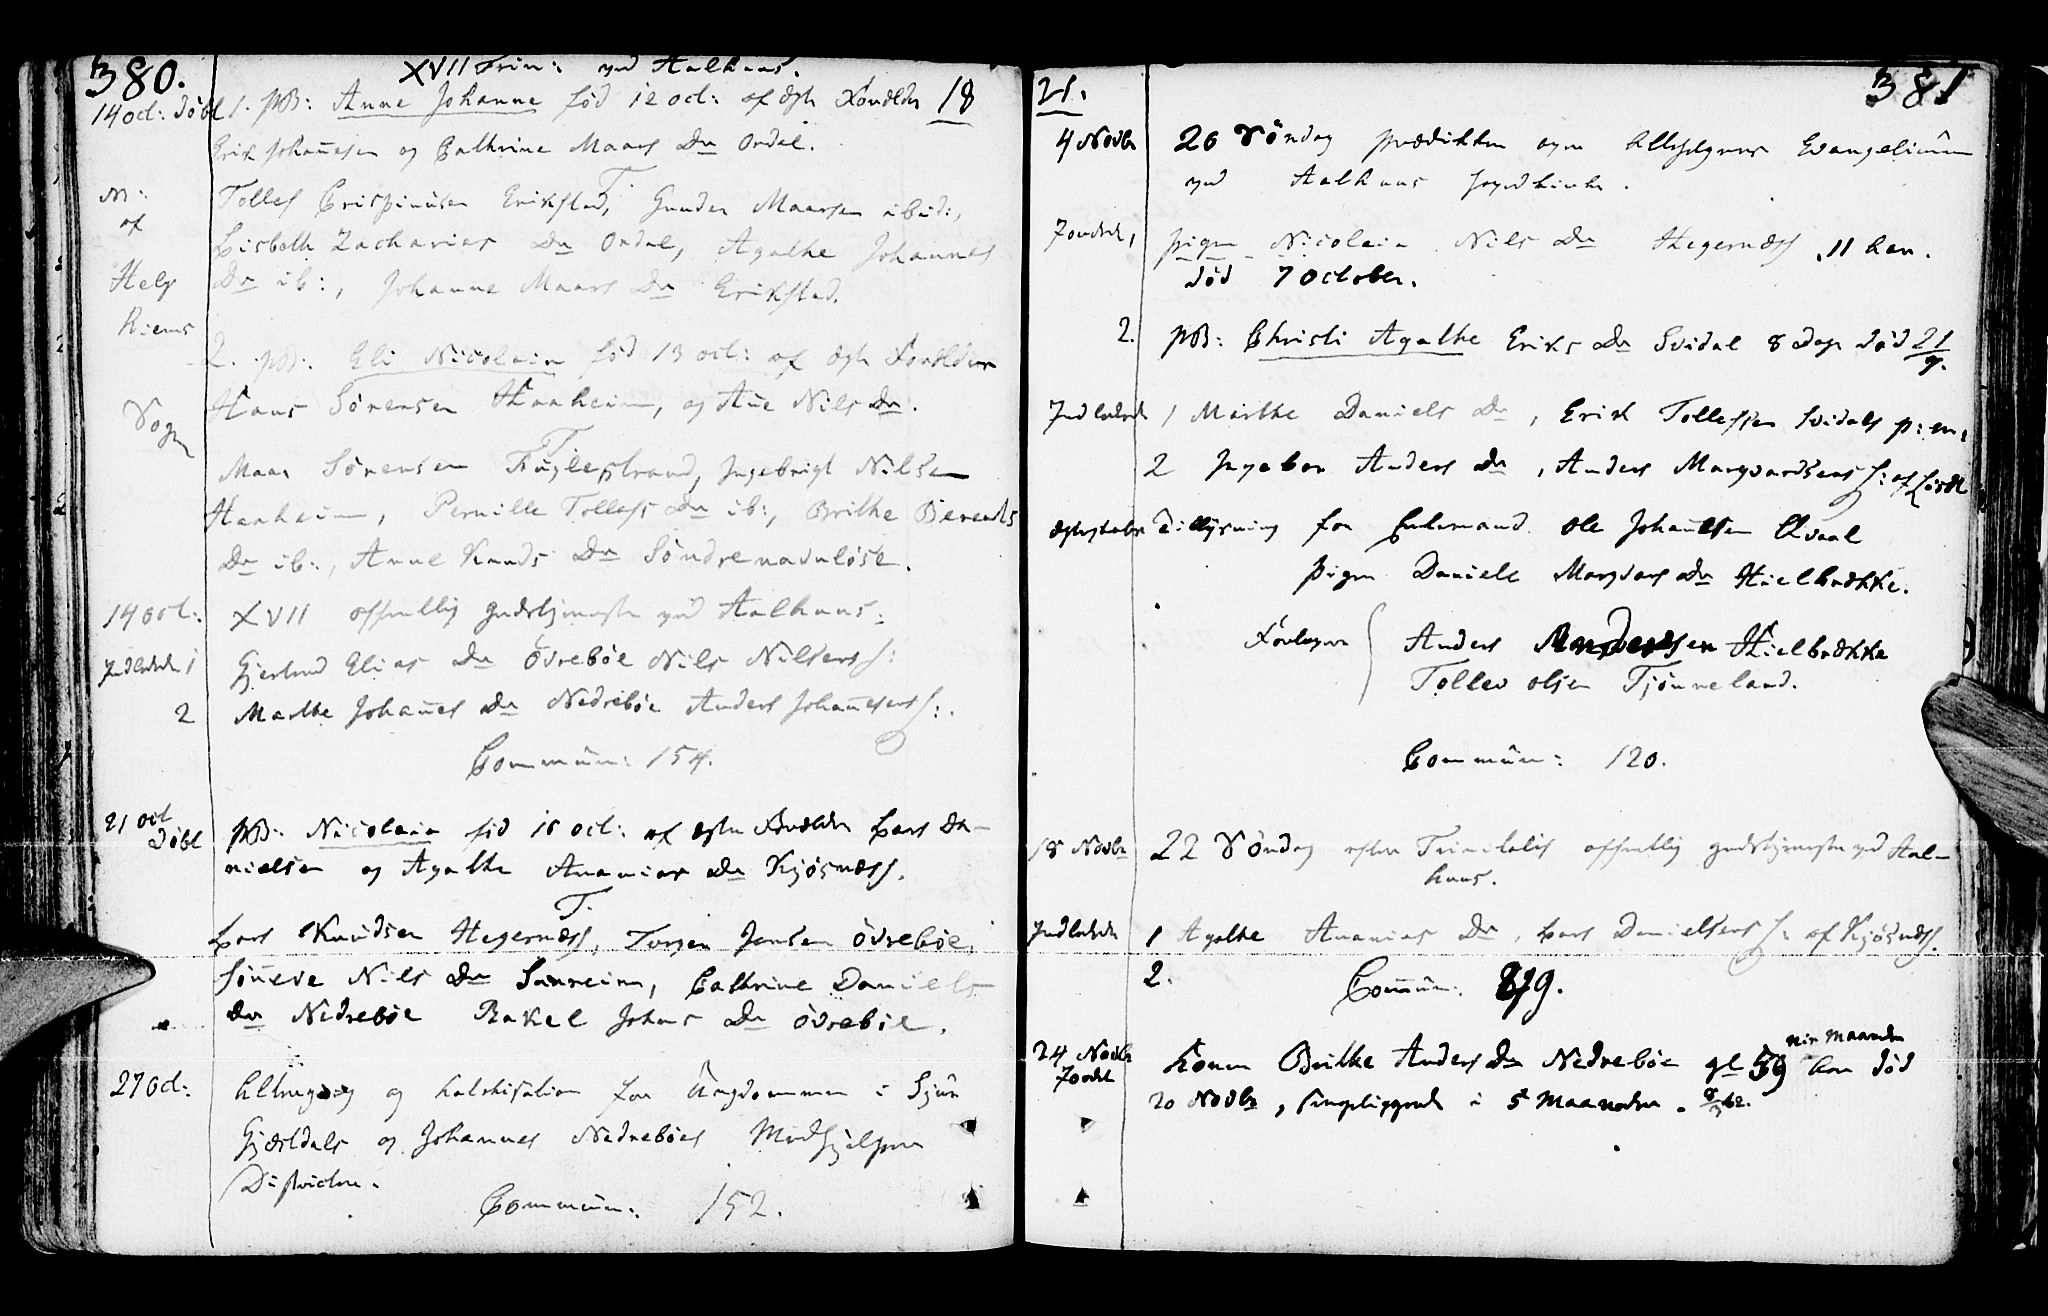 380.
XVII Trin: ved Aalhuus.
14 oct: døbt 1. PB: Anne Johanne fød 12 oct: af ægte Forældre 18
Erik Johañesen og Cathrine Maars Dr Ordal.
T.
N:
af
Helg
hiems
Sogn
Tollef Crispinusen Erikstad, Gunder Maarsen ibid:,
Lisbeth Zacharias Dr Ordal, Agathe Johannes
Dr ib:, Johanne Maars Dr Erikstad.
2. PB: Eli Nicolaia fød 13 oct: af ægte Forældre
Hans Sørensen Haaheim, og Añe Nils Dr.
T.
Maar Sørensen Fuglestrand, Ingebrigt Nilsen
Haaheim, Pernille Tollefs Dr ib:, Brithe Berents
Dr ib:, Anne Knuds Dr Søndrenavnløse.
14 oct: XVII offentlig gudstjeneste ved Aalhuus:
Indledede 1 Gjertrud Elias Dr Øvrebøe Nils Nilsens H:
2 Marthe Johañes Dr Nedrebøe Anders Johañesens H:.
Commun: 154.
21 oct
døbt PB: Nicolaia fød 18 oct: af ægte Forældre Lars Da-
nielsen og Agathe Ananias Dr Kjøsnæss.
T.
Lars Knudsen Hegernæss, Torger Jensen Øvrebøe,
Søñeve Nils Dr Sanreim, Cathrine Daniels
Dr Nedrebøe Rakel Johans Dr Øvrebøe.
27 Oct: og Catechisation for Ungdommen i Sjur
Gjesdals og Johannes Nedrebøes Medhjelper
Districter.
Commun: 152.
21.
381
4 Novbr 20 Søndag prædikken over Allehelgens Evangelium
ved Aalhuus Hovedkirke.
Jordede 1 pigen Nicolaia Nils Dr Hegernæss, 11 Aar.
død 7 October.
2. PB: Christi Agathe Eriks Dr Svidal 8 Dage død 21/9.
Indledede 1 Marthe Daniels Dr, Erik Tollefsen Svidals
2 Ingebor Anders Dr, Anders Marqvardsens H: af
Tillysning for Enkemand Ole Johañesen Qvaal
Pigen Daniels Dr Hielbrække.
Forlovere Anders Hielbrække
Tollev Olsen Tjønneland.
Commun: 120.
18 Novbr 22 Søndag efter Trinitatis offentlig gudstjeneste ved Aal-
huus.
Indledede 1 Agathe Ananias Dr, Lars Danielsens H: af Kjøsnæss.
2. Com̄un: 89.
24 Novbr
Jordet Konen Brithe Anders Dr Nedrebøe gl 59 Aar nie Maaneder død
20 Novbr, i 5 Maaneder.